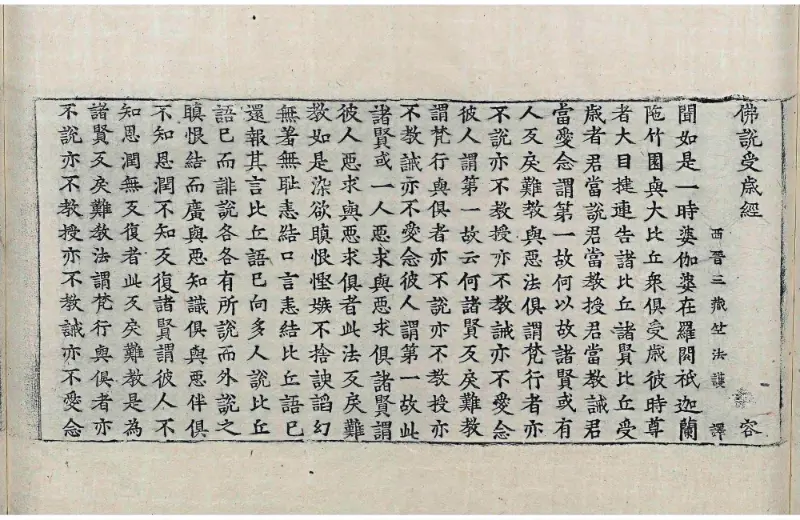 佛說受歲經 容
西晉三藏竺法護 譯
聞如是一時婆伽婆在羅閱祇迦蘭
陁竹園與大比丘衆俱受歲彼時尊
者大目揵連告諸比丘諸賢比丘受
歲者君當說君當教授君當教誡君
當愛念謂第一故何以故諸賢或有
人反戾難教與惡法俱謂梵行者亦
不說亦不教授亦不教誡亦不愛念
彼人謂第一故云何諸賢反戾難教
謂梵行與俱者亦不說亦不教授亦
不教誡亦不愛念彼人謂第一故此
諸賢或一人惡求與惡求俱諸賢謂
彼人惡求與惡求俱者此法反戾難
教如是染欲瞋恨慳嫉不捨諛諂幻
無羞無恥恚結口言恚結比丘語已
還報其言比丘語已向多人說比丘
語已而誹說各各有所說而外說之
瞋恨結而廣與惡知識俱與惡伴俱
不知恩潤不知反復諸賢謂彼人不
知恩潤無反復者此反戾難教是為
諸賢反戾難教法謂梵行與俱者亦
不說亦不教授亦不教誡亦不愛念